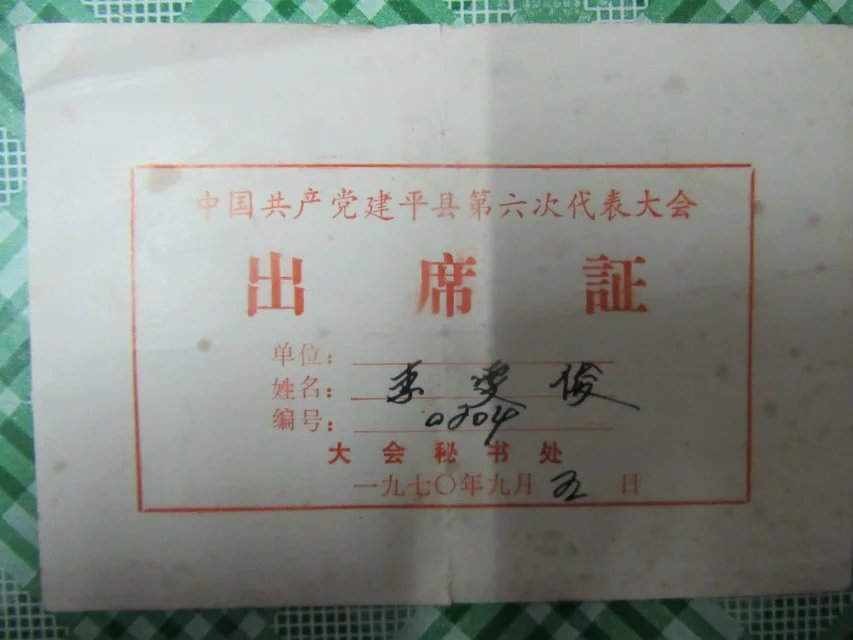 中国共产党建平县第六次代表大会
出席証
单位：
姓名：李 俊
编号：0204
大会秘书处
一九七〇年九月五日